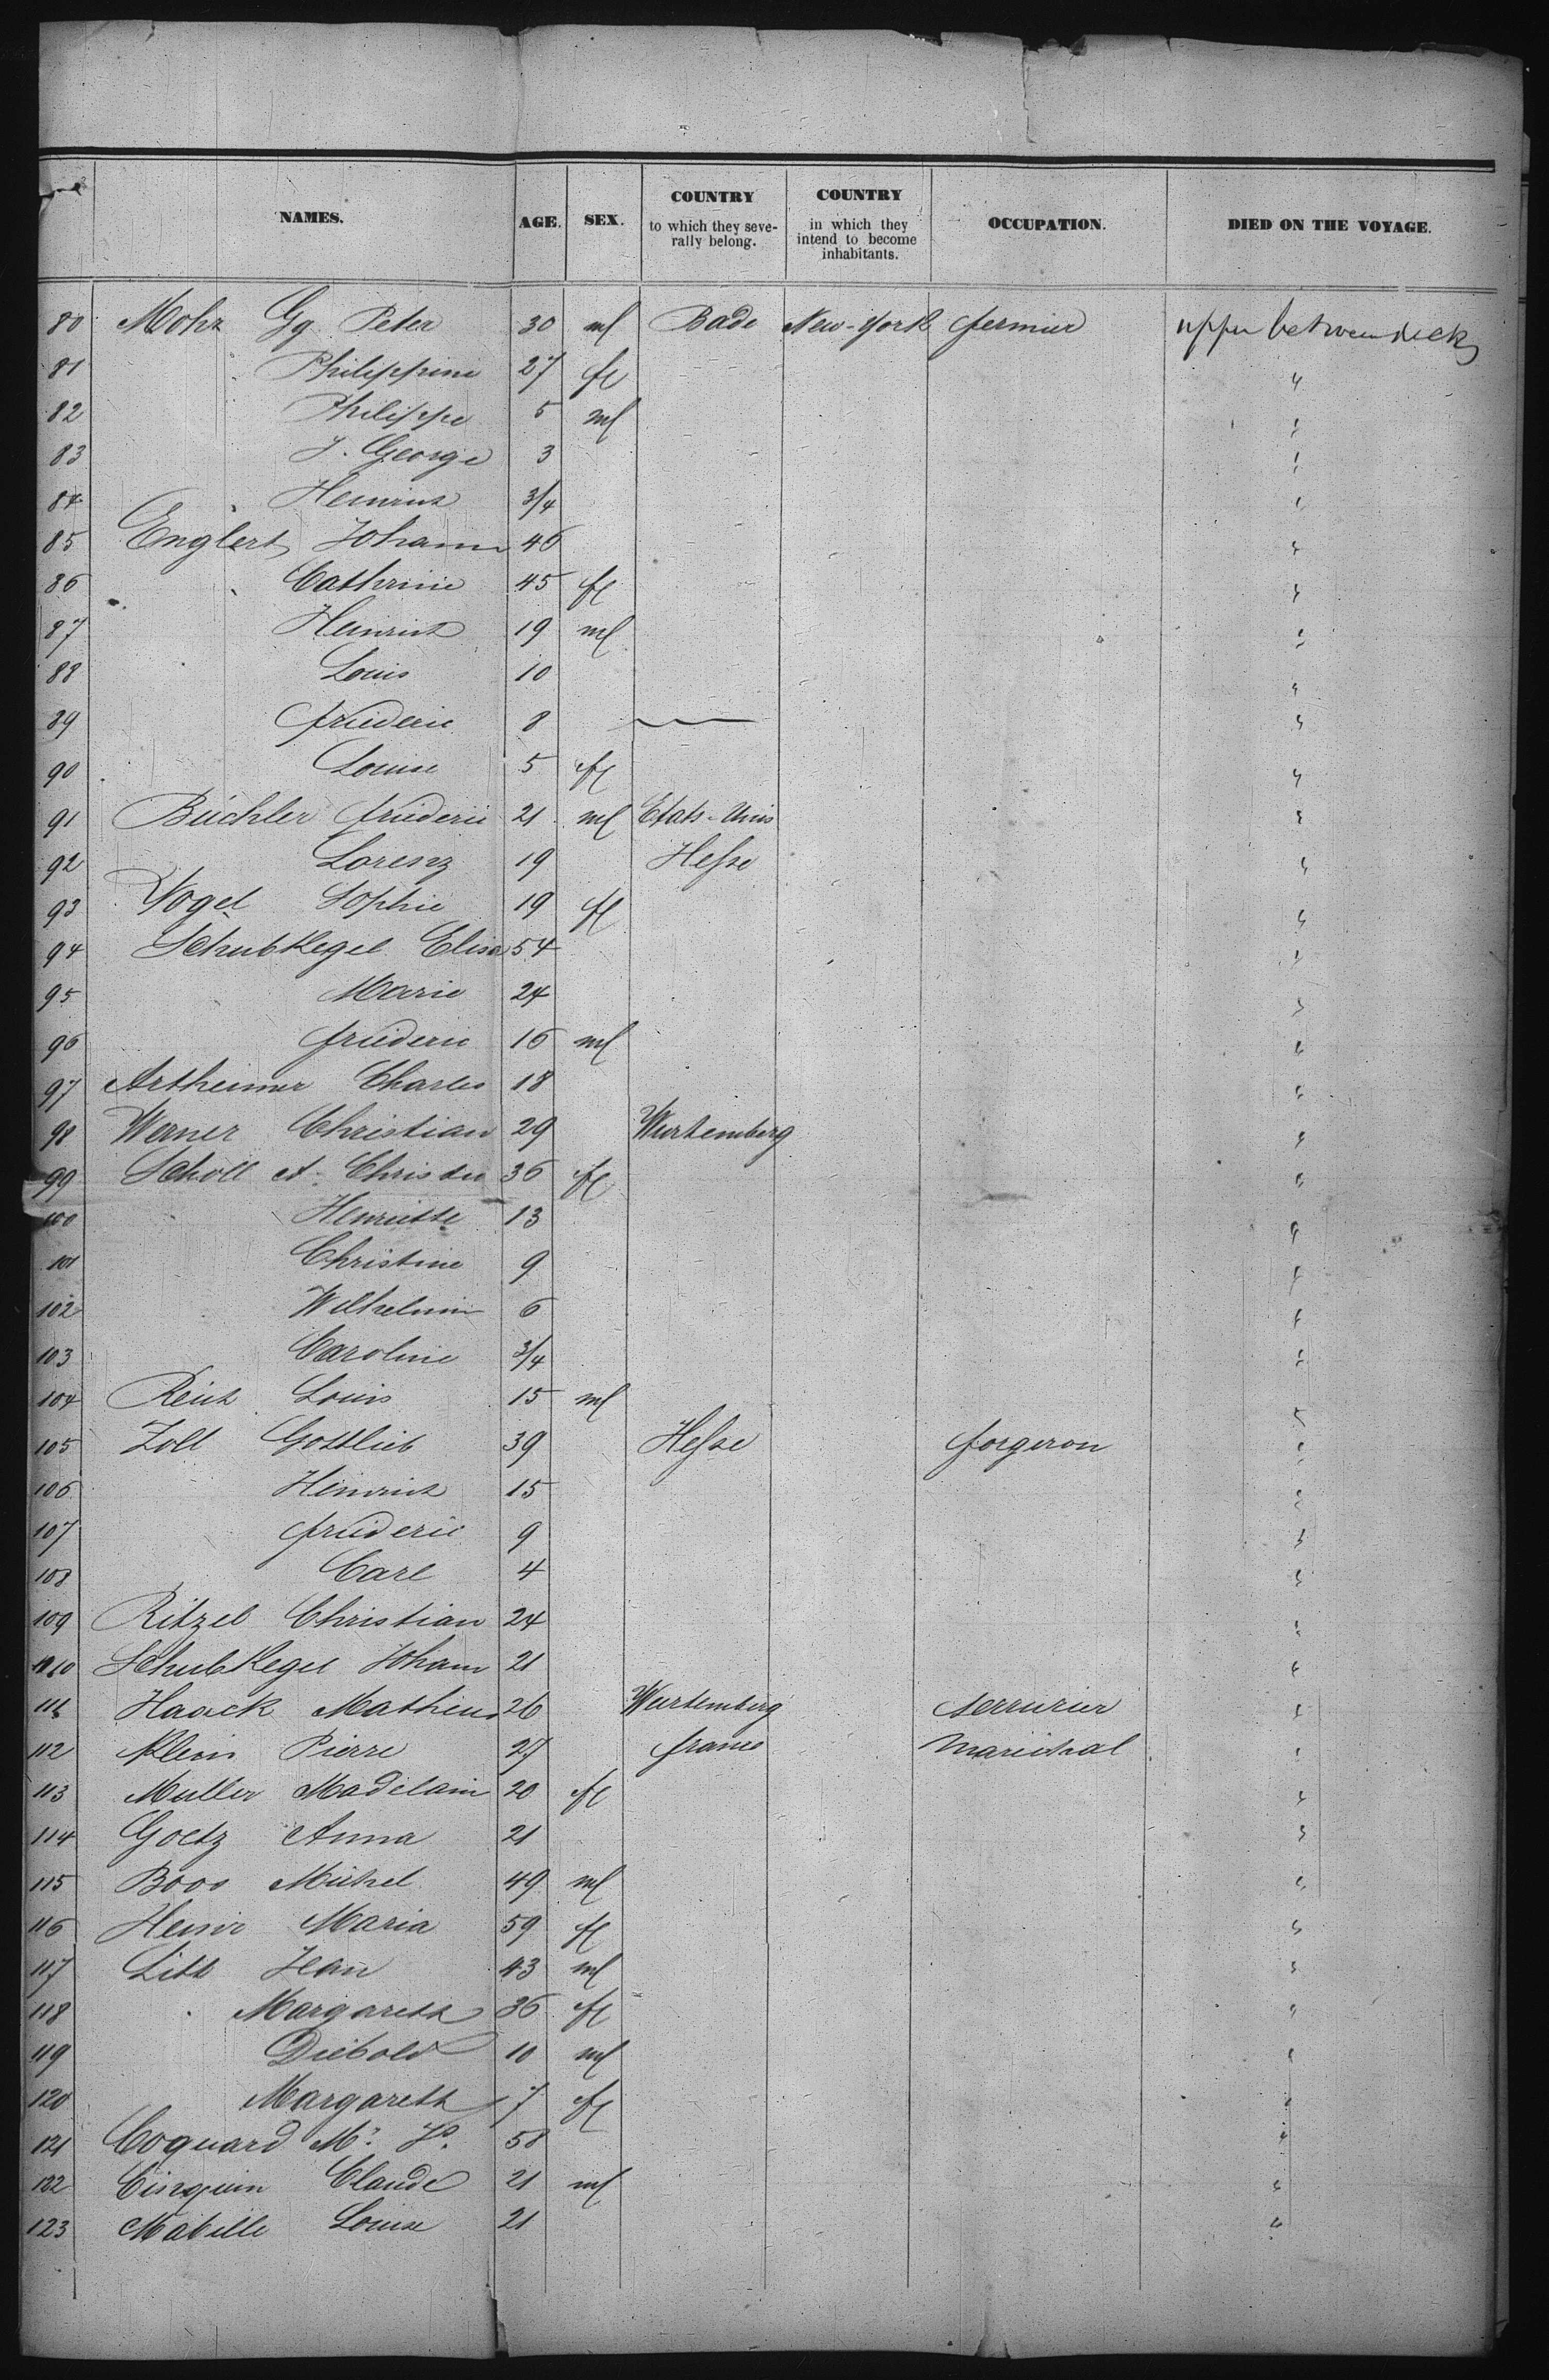 NAMES. AGE. SEX. COUNTRY to which they seve-rally belong. COUNTRY in which they intend to become inhabitants. OCCUPATION. DIED ON THE VOYAGE.
80 Mohr Gg. Peter 30 ml Bade New-York fermier upper betweendecks
81 " Philippine 27 fl "
82 Philippe 5 ml "
83 J. George 3 "
84 " Heinrich 3/4 "
85 Englert Johann 46 "
86 " Cathrine 45 fl "
87 Heinrich 19 ml "
88 Louis 10 "
89 friederic 8 — "
90 Louise 5 fl "
91 Büchler friederic 21 ml Etats-Unis "
92 Lorenz 19 Hesse "
93 Vogel Sophie 19 fl "
94 Schubkegel Elisa 54 "
95 Marie 24 "
96 friederic 16 ml "
97 Artheimer Charles 18 "
98 Werner Christian 29 Wurtemberg "
99 Scholl A. 36 fl "
100 Henriette 13 "
101 Christine 9 "
102 Wilhelmin 6 "
103 Caroline 3/4 "
104 Louis 15 ml "
105 Zoll Gottlieb 39 Hesse forgeron "
106 Heinrich 15 "
107 friederic 9 "
108 Carl 4 "
109 Ritzel Christian 24 "
110 Schubkegel Johann 21 "
111 Haack Mathieu 26 Wurtemberg serrurier "
112 Klein Pierre 27 france marechal "
113 Muller Madelain 20 fl "
114 Goetz Anna 21 "
115 Boos Michel 49 ml "
116 Maria 59 fl "
117 Litt Jean 43 ml "
118 " Margareth 36 fl "
119 Diebold 10 ml "
120 Margareth 7 fl "
121 Coquard Mr. 58 "
122 Cinquin Claude 21 ml "
123 Mabille Louise 21 "